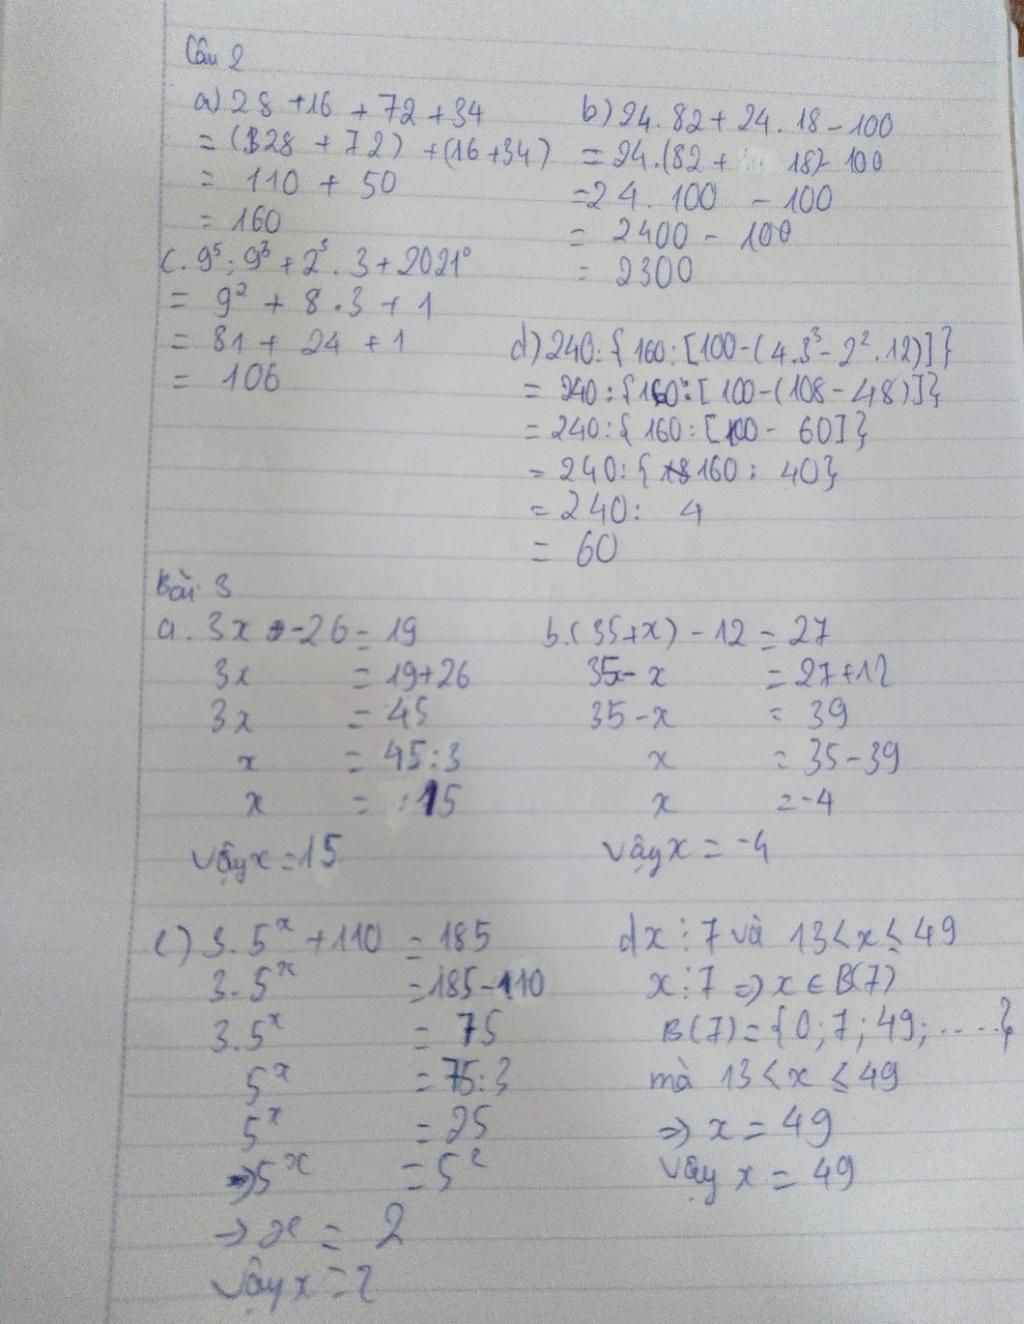 Câu 2
a) 28 + 16 + 72 + 34
= (28 + 72) + (16 + 34)
= 110 + 50
= 160
b) 24 . 82 + 24 . 18 - 100
= 24 . (82 + 18) - 100
= 24 . 100 - 100
= 2400 - 100
= 2300
c. 9⁵ : 9³ + 2³ . 3 + 2021⁰
= 9² + 8 . 3 + 1
= 81 + 24 + 1
= 106
d) 240 : { 160 : [100 - (4 . 3³ - 2² . 12)]}
= 240 : {160 : [100 - (108 - 48)]}
= 240 : { 160 : [100 - 60]}
= 240 : { 160 : 40}
= 240 : 4
= 60
Bài 3
a. 3x - 26 = 19
3x = 19 + 26
3x = 45
x = 45 : 3
x = 15
Vậy x = 15
b. (35 + x) - 12 = 27
35 - x = 27 + 12
35 - x = 39
x = 35 - 39
x = -4
Vậy x = -4
c) 3 . 5ˣ + 110 = 185
3 . 5ˣ = 185 - 110
3 . 5ˣ = 75
5ˣ = 75 : 3
5ˣ = 25
⇒ 5ˣ = 5²
→ x = 2
Vậy x = 2
d x ⋮ 7 và 13 < x ≤ 49
x ⋮ 7 ⇒ x ∈ B(7)
B(7) = {0 ; 7 ; 49 ; .....}
mà 13 < x ≤ 49
⇒ x = 49
Vậy x = 49